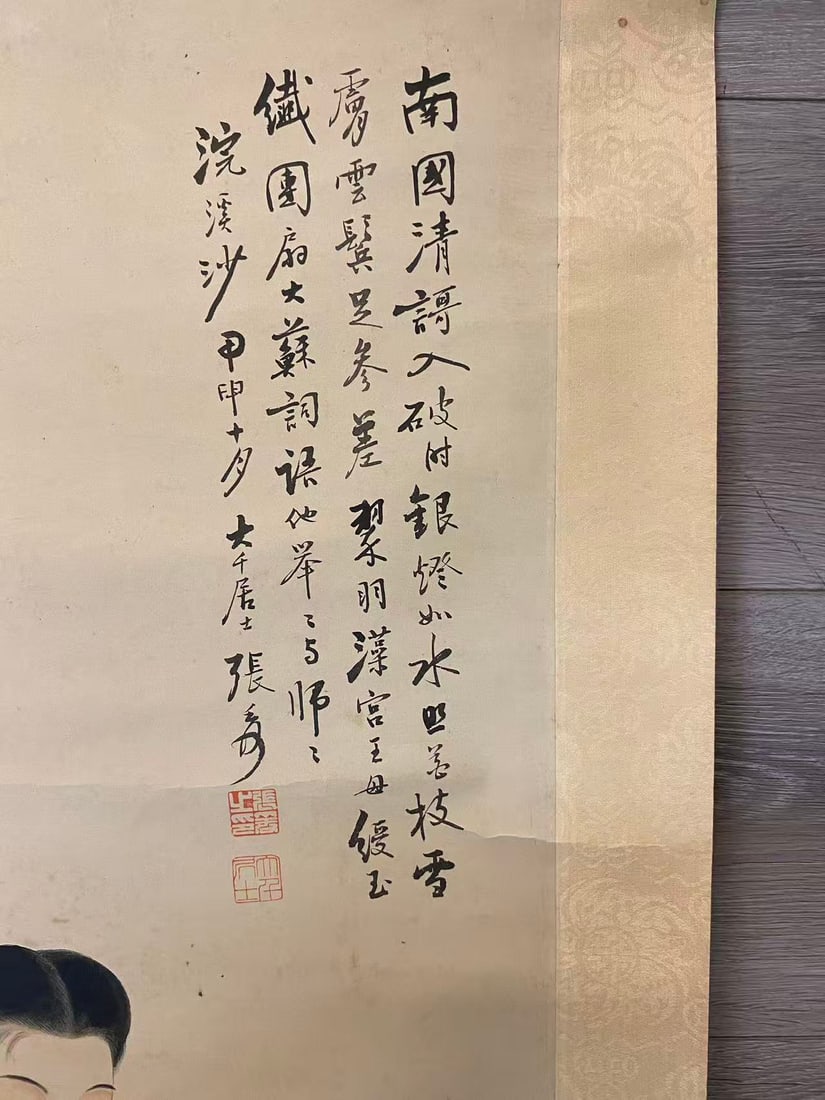 南國清謌入破时銀燈如水照花枝雪
膚雲鬢足參差翠羽藻宮王母綬玉
纖團扇大蘇詞語他舉〻与師〻
浣溪沙 甲申十月 大千居士張爰
張爰之印
大千居士